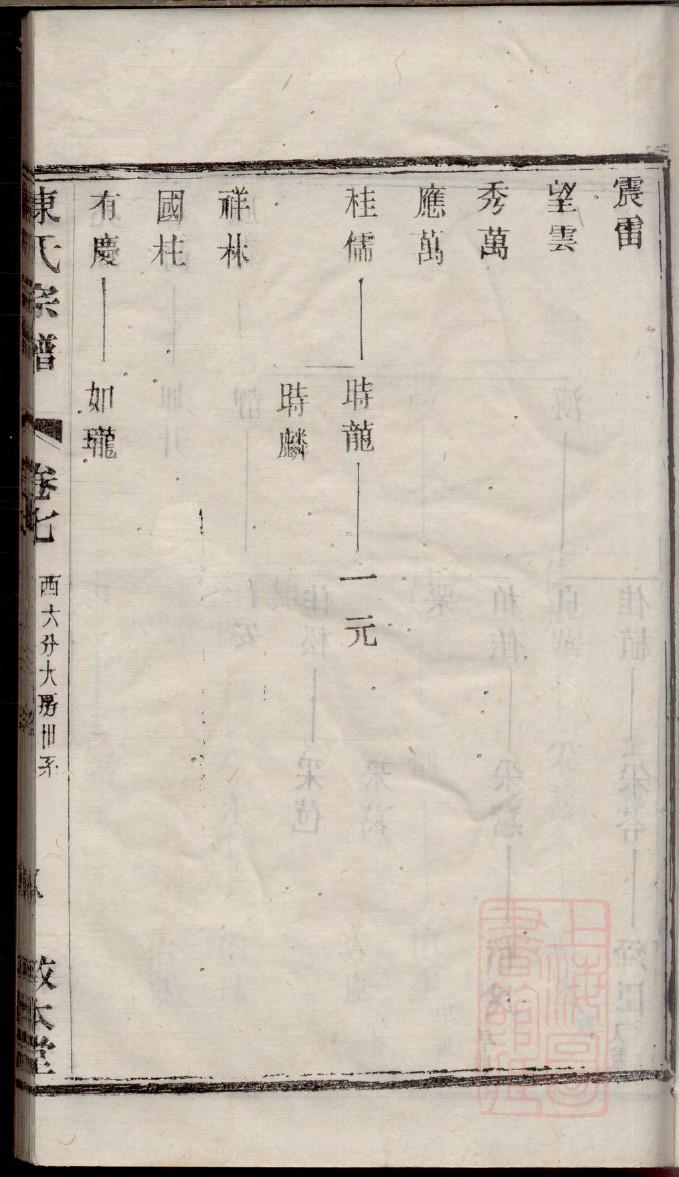 震雷
望雲
秀萬
應萬
桂儒 時龍 一元
時麟
祥林
國柱
有慶 如瓏
氏宗譜 卷七 西大分大房世系 敦本堂
上海圖書館藏